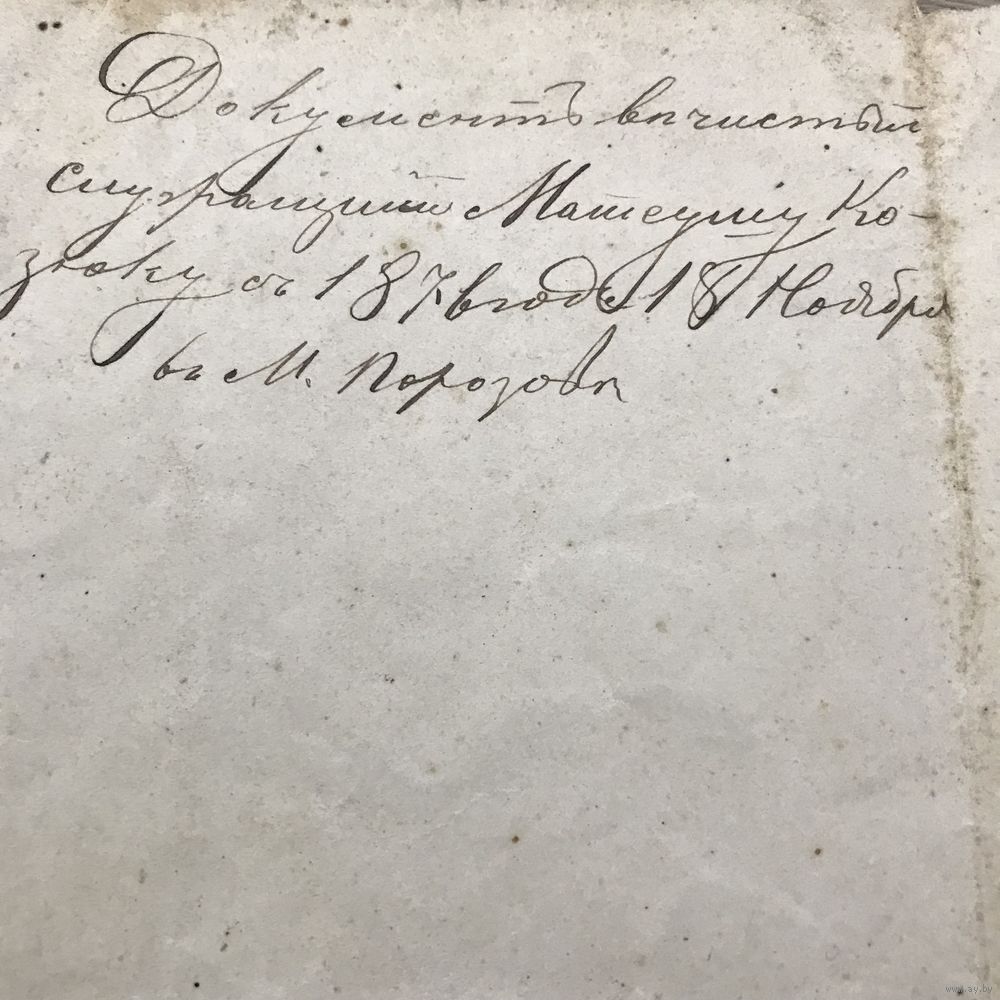 Документъ вѣчистый
служащій Матеушу Ко-
зюку съ 187 году 18 Ноября
въ М. Порозовѣ
www.ay.by